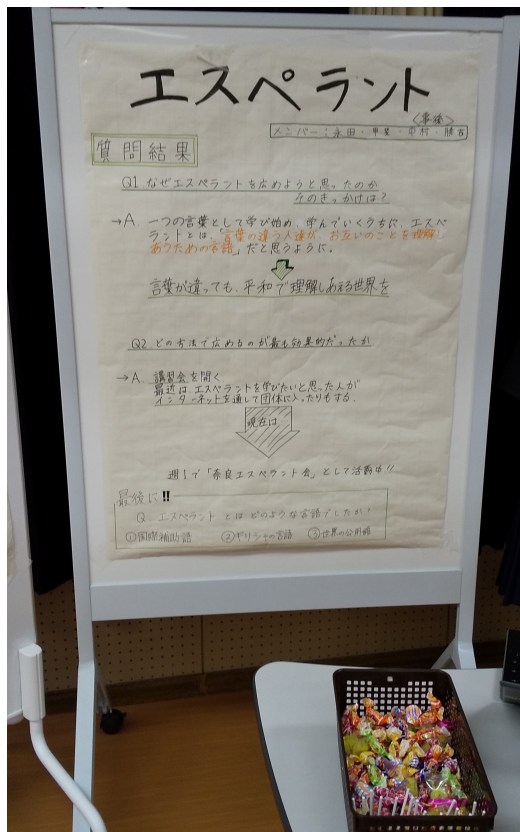 エスペラント
〈事後〉
メンバー：永田・甲斐・中村・勝吉
質問結果
Q1 なぜエスペラントを広めようと思ったのか
そのきっかけは？
→A 一つの言葉として学び始め、学んでいくうちに、エスペ
ラントとは、「言葉の違う人達が、お互いのことを理解し
あうための言語」だと思うように。
言葉が違っても、平和で理解しあえる世界を
Q2 どの方法で広めるのが最も効果的だったか
→A. 講習会を開く
最近は、エスペラントを学びたいと思った人が
インターネットを通して団体に入ったりもする。
現在は
週1で「奈良エスペラント会」として活動中!!
最後に!!
Q. エスペラント とはどのような言語でしたか？
①国際補助語 ②ギリシャの言語 ③世界の公用語